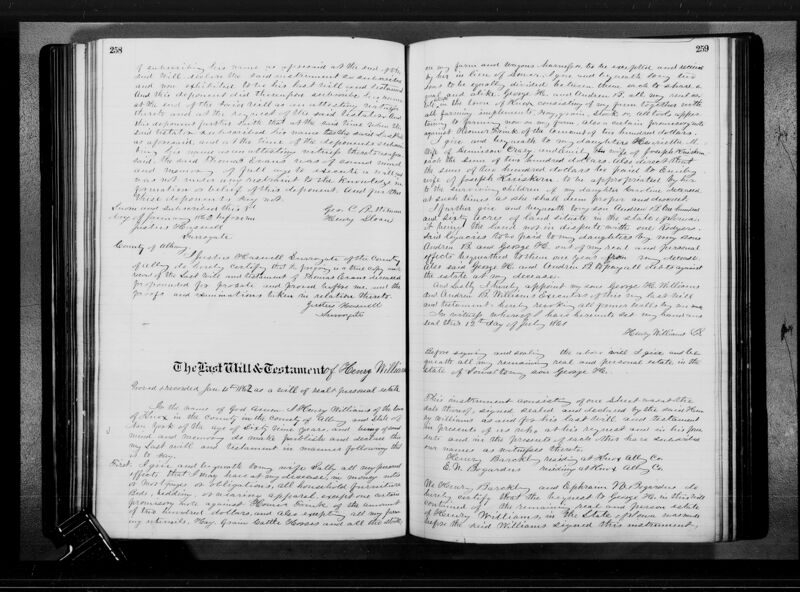 258
of subscribing his name as aforesaid at the end of the
said Will declare the said instrument so subscribed
and now exhibited to be his last will and testament
and this deponent did thereupon subscribe his name
at the end of the said will as an attesting witness
thereto and at the request of the said testator. And
this deponent further saith that at the said time when the
said testator subscribed his name to the said last will
as aforesaid, and at the time of the deponents subscri
bing his name as an attesting witness thereto as afore
said the said Thomas Evans was of sound mind
and memory of full age to execute a will and
was not under any restraint to the knowledge in
formation or belief of this deponent. And further
these deponents say not.
Sworn and subscribed this 8th
day of January 1862 before me
Justus Haswell
Surrogate
Geo. C.
Henry Sloan
County of Albany
I Justus Haswell Surrogate of the County
of Albany do hereby certify that the foregoing is a true copy and
record of the Last Will and testament of Thomas Evans deceased
propounded for probate and proved before me and the
proofs and examinations taken in relation thereto.
Justus Haswell
Surrogate
The Last Will & Testament of Henry William
Proved & recorded Jan 4th 1862 as a will of real & personal estate
In the name of God Amen. I Henry Williams of the town
of Knox in the county in the county of Albany and state of
New York of the age of sixty nine years, and being of sound
mind and memory do make publish and declare this
my Last Will and Testament in manner following that
is to say.
First. I give and bequeath to my wife Sally all my personal
effects that I may have at my decease, in money notes
or mortgages or obligations, all household furniture
Beds, bedding, or wearing apparel, except one certain
promissory note against Homer Frink of the amount
of two hundred dollars, and also excepting all my farm
ing utensils. Hay Grain Cattle Horses and all the stock
259
on my farm and wagons harness &c to be excepted and received
by her in lieu of Dower. I give and bequeath to my two
sons to be equally divided between them each to share e
qual and alike. George H. and Andrew B. all my real es
tate in the town of Knox consisting of my farm together with
all farming implements, Hay, grain, stock or all tools apper
taining now on my farm also a certain promissory note
against Homer Frink of the amount of two hundred dollars.
I give and bequeath to my daughters Henrietta M.
wife of Denison Crary and Emily the wife of Joseph
each the sum of two hundred dollars also direct that
the sum of two hundred dollars be paid to Emily
wife of Joseph to be appropriated by her
to the surviving children of my daughter Caroline deceased
at such times as she shall deem proper and discreet.
I further give and bequeath to my son Andrew B. One hundred
and sixty acres of land situate in the state of Iowa
it being the land not in dispute with one Rodgers.
Said legacies to be paid to my daughters by my sons
Andrew B. and George H. out of my real and personal
effects bequeathed to them one year from my decease.
Also said George H. and Andrew B. to pay all debts against
the estate at my decease.
And Lastly I hereby appoint my son George H. Williams
and Andrew B. Williams Executors of this my last will
and testament; hereby revoking all former wills by me made
In witness whereof I have hereunto set my hand and
seal this 12th day of July 1861
Henry Williams
Before signing and sealing the above will I give and be
queath all my remaining real and personal estate in the
State of Iowa to my son George H.
This instrument consisting of one sheet was at the
date thereof, signed sealed and declared by the said Hen
ry Williams as and for his last will and testament
in presents of us who at his request and in his pres
ents and in the presents of each other have subscribed
our names as witnesses thereto.
Henry Barckley residing at Knox Alby Co.
E. W. Bogardus residing at Knox Alby Co.
We Henry Barckley and Ephraim W. Bogardus do
hereby certify that the bequest to George H. in this Will
contained of the remaining real and person estate
of Henry Williams, in the State of Iowa was made
before the said Williams signed this instrument,